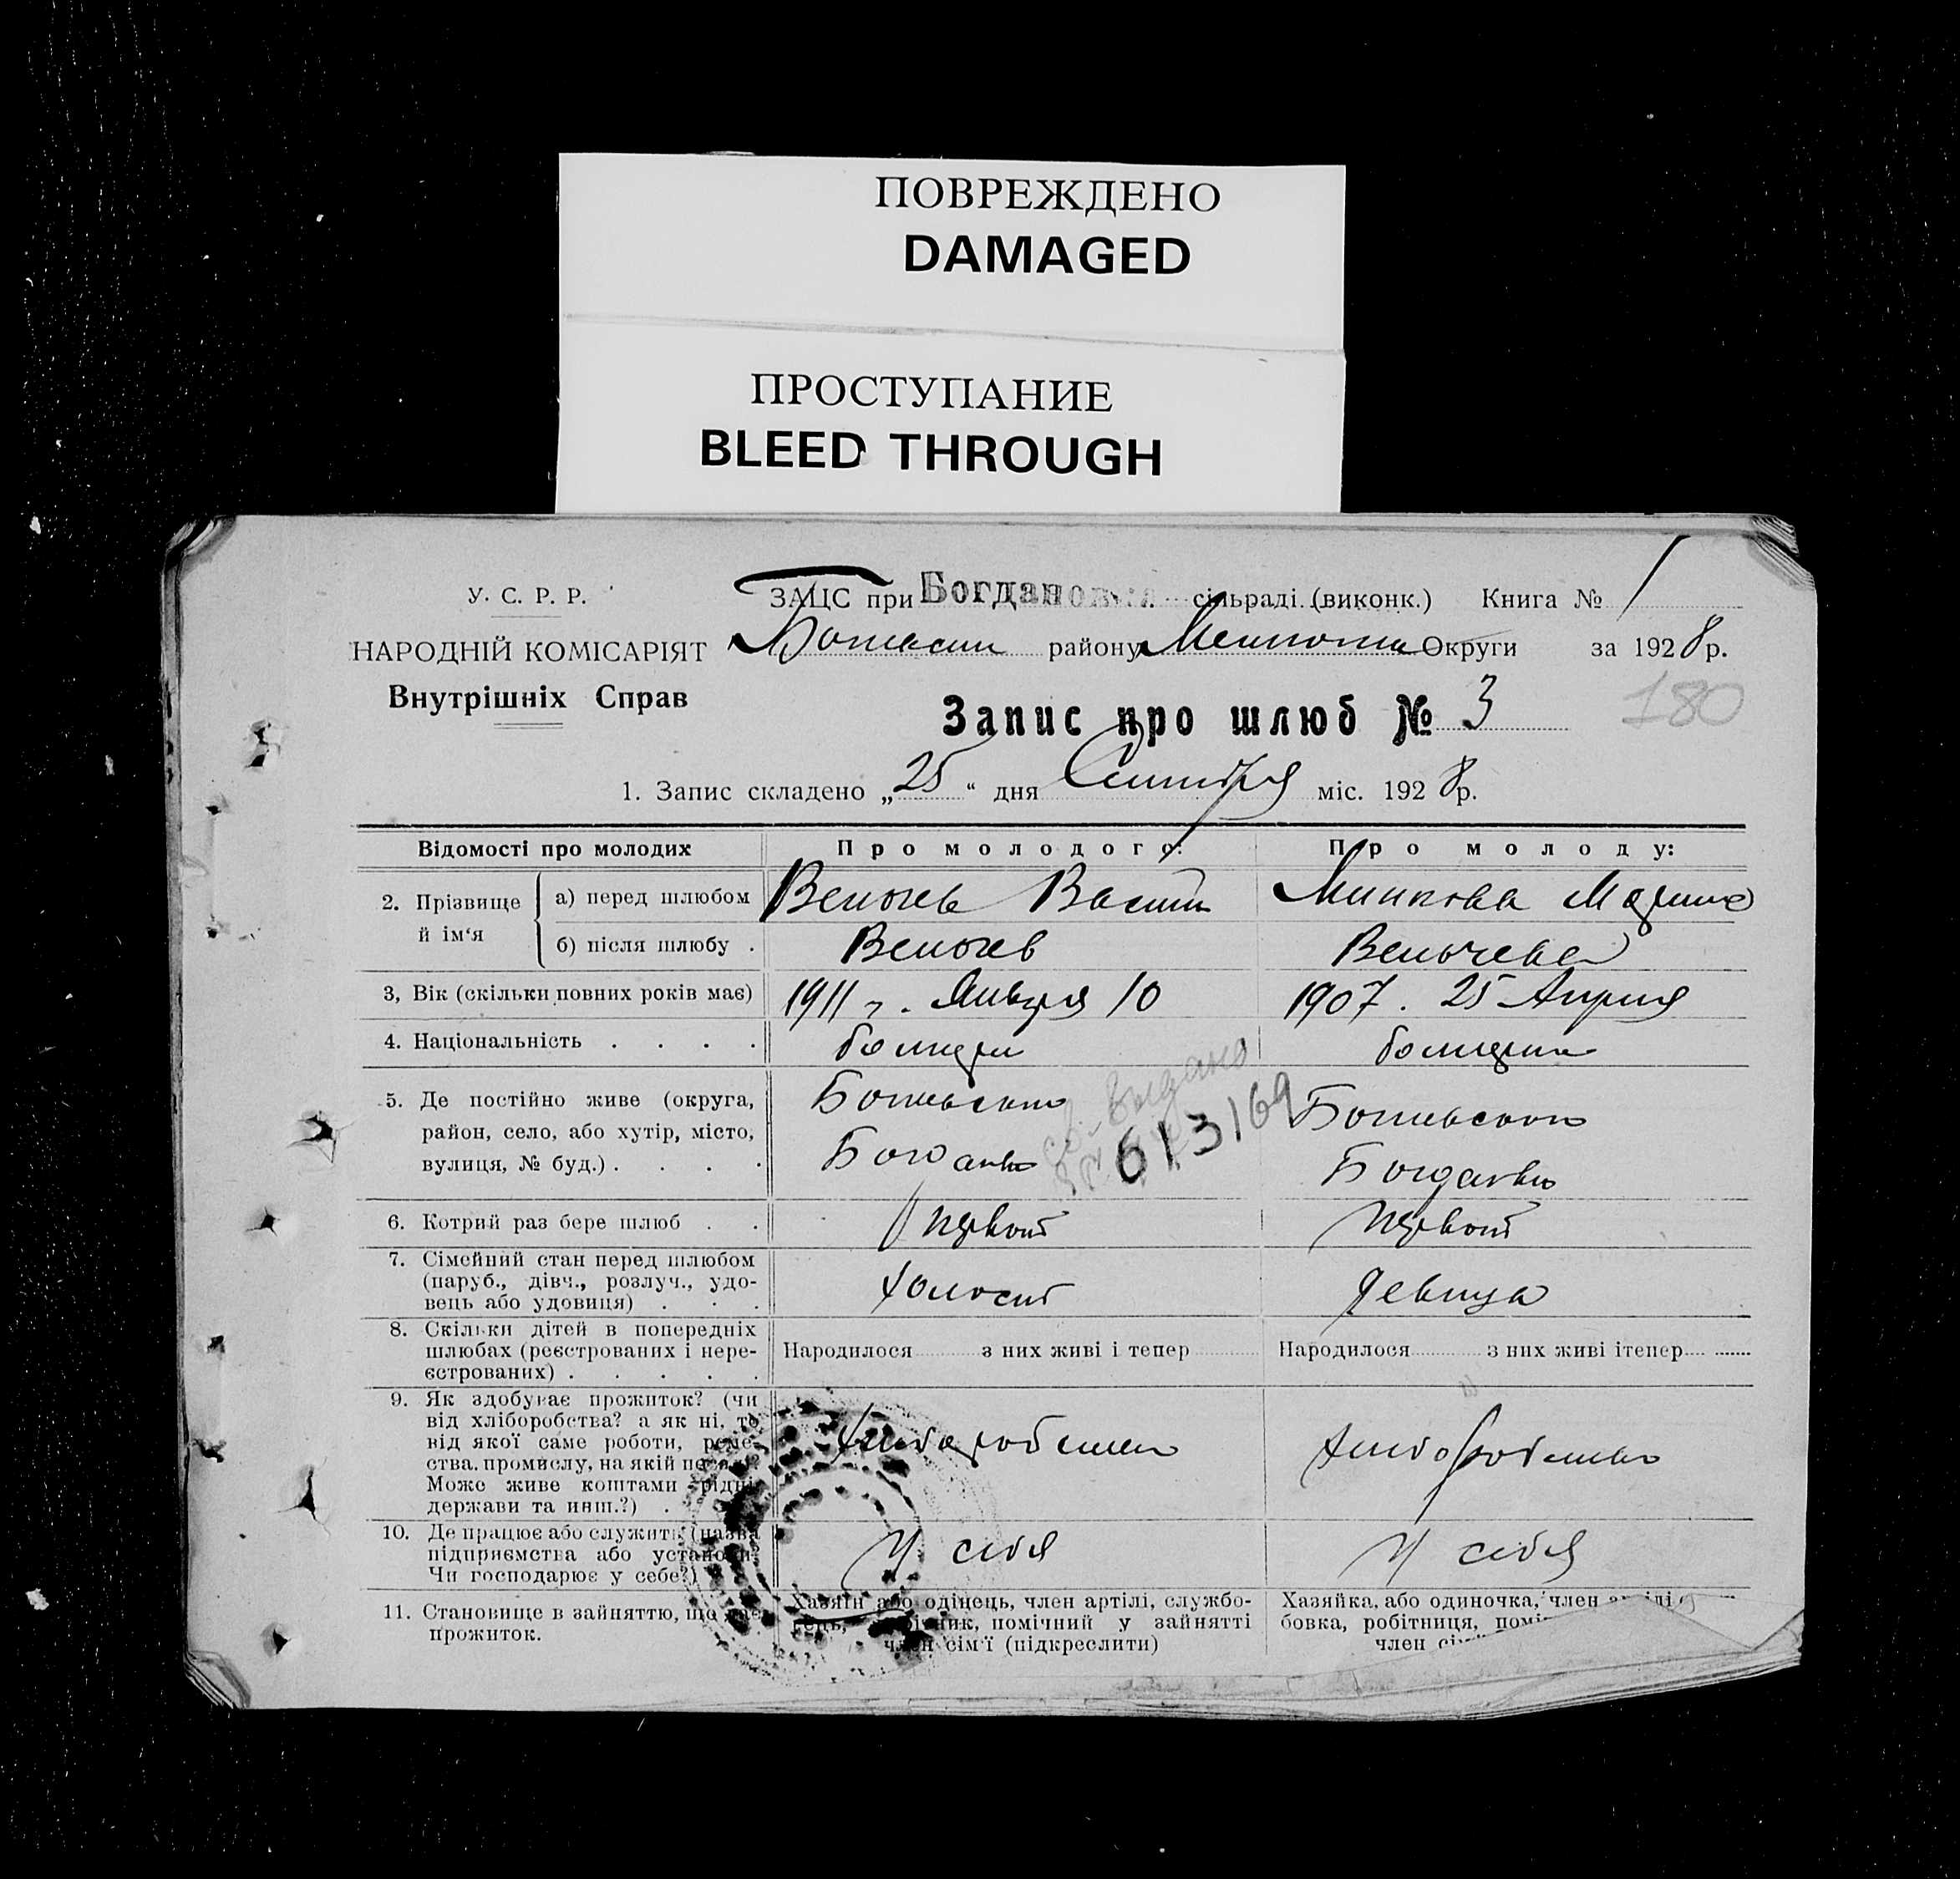 ПОВРЕЖДЕНО
DAMAGED
ПРОСТУПАНИЕ
BLEED THROUGH
У. С. Р. Р.
ЗАЦС при Богданов сільраді (виконк.) Книга № 1
НАРОДНІЙ КОМІСАРІЯТ району Округи за 1928 р.
Внутрішніх Справ
Запис про шлюб № 3
180
1. Запис складено „25" дня міс. 1928 р.
Відомості про молодих Про молодого: Про молоду:
2. Прізвище й ім'я
а) перед шлюбом Велчев Минкова Марина
б) після шлюбу . Велчев Велчева
3, Вік (скільки повних років має) 1911 г. Января 10 1907. 25 Апреля
4. Національність . . . . болгари болгарка
5. Де постійно живе (округа,
район, село, або хутір, місто,
вулиця, № буд.) . . . .
Богдановка
Богдановка
613169
6. Котрий раз бере шлюб . . первой первой
7. Сімейний стан перед шлюбом
(паруб., дівч., розлуч., удо-
вець або удовиця) . . . холост девица
8. Скільки дітей в попередніх
шлюбах (реєстрованих і нере-
єстрованих) . . . . .
Народилося з них живі і тепер Народилося з них живі ітепер
9. Як здобуває прожиток? (чи
від хліборобства? а як ні, то
від якої саме роботи, реме-
ства, промислу, на якій посаді?
Може живе коштами рідні
держави та инш.?) .
10. Де працює або служить (назва
підприємства або установи?
Чи господарює у себе?)
У себя У себя
11. Становище в зайняттю, що дає
прожиток.
Хазяїн або одінець, член артілі, службо-
вець, робітник, помічний у зайнятті
член сім'ї (підкреслити)
Хазяйка, або одиночка, член артілі
бовка, робітниця,
член